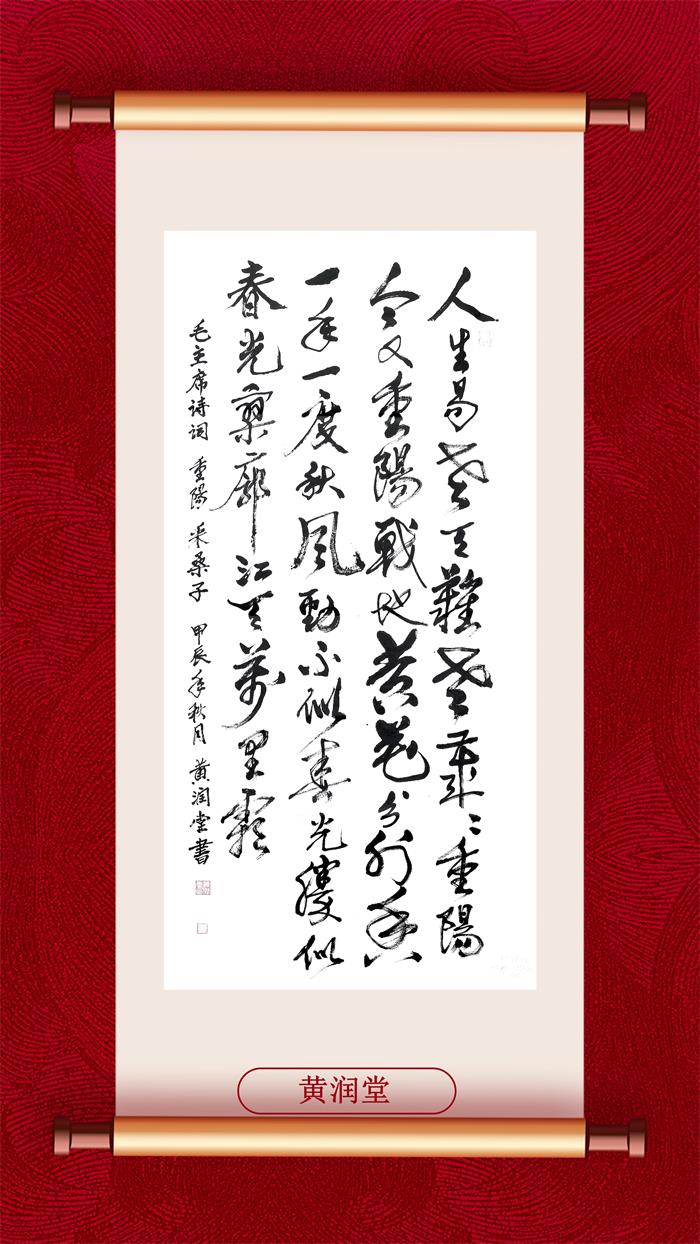 人生易老天難老歲〻重陽
今又重陽戰地黄花分外香
一年一度秋風勁不似春光勝似
春光寥廓江天萬里霜
毛主席诗词 重陽 采桑子 甲辰年秋月 黄润堂書
黄润堂